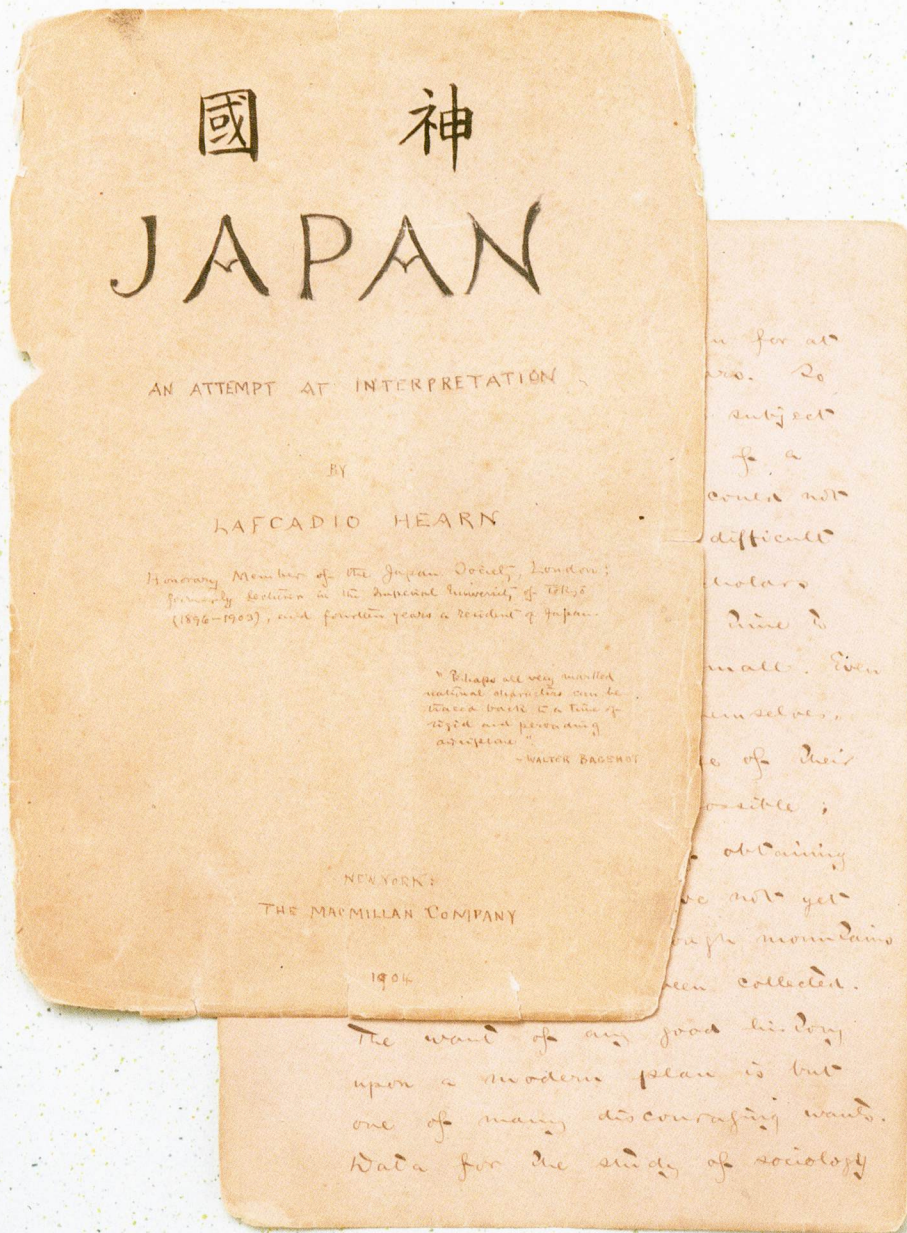 國 神
JAPAN
AN ATTEMPT AT INTERPRETATION
BY
LAFCADIO HEARN
Honorary Member of the Japan Society, London;
formerly lecturer in the Imperial University of Tōkyō
(1896–1903), and fourteen years a resident of Japan.
"Perhaps all very marked
national characters can be
traced back to a time of
rigid and pervading
discipline"
-WALTER BAGEHOT
NEW YORK:
THE MACMILLAN COMPANY
1904
for at
So
subject
of a
could not
difficult
time to
small. Even
themselves,
of their
possible;
obtaining
not yet
mountains
been collected.
The want of any good history
upon a modern plan is but
one of many discouraging wants.
Data for the study of sociology